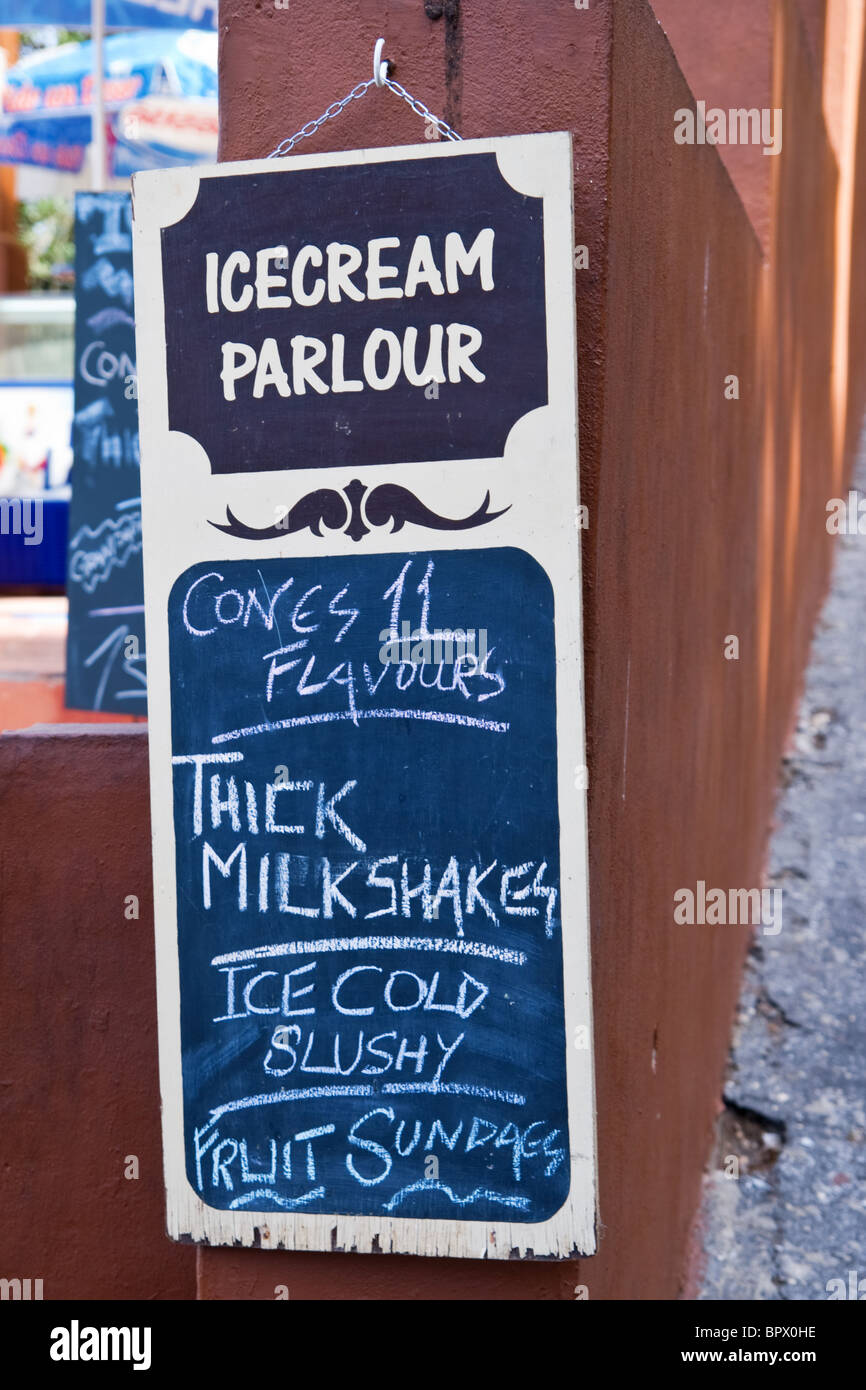 ICECREAM
PARLOUR
CONES 11
FLAVOURS
THICK
MILKSHAKES
ICE COLD
SLUSHY
FRUIT SUNDAES
CON
THIC
15
alamy
Image ID: BPX0HE
www.alamy.com